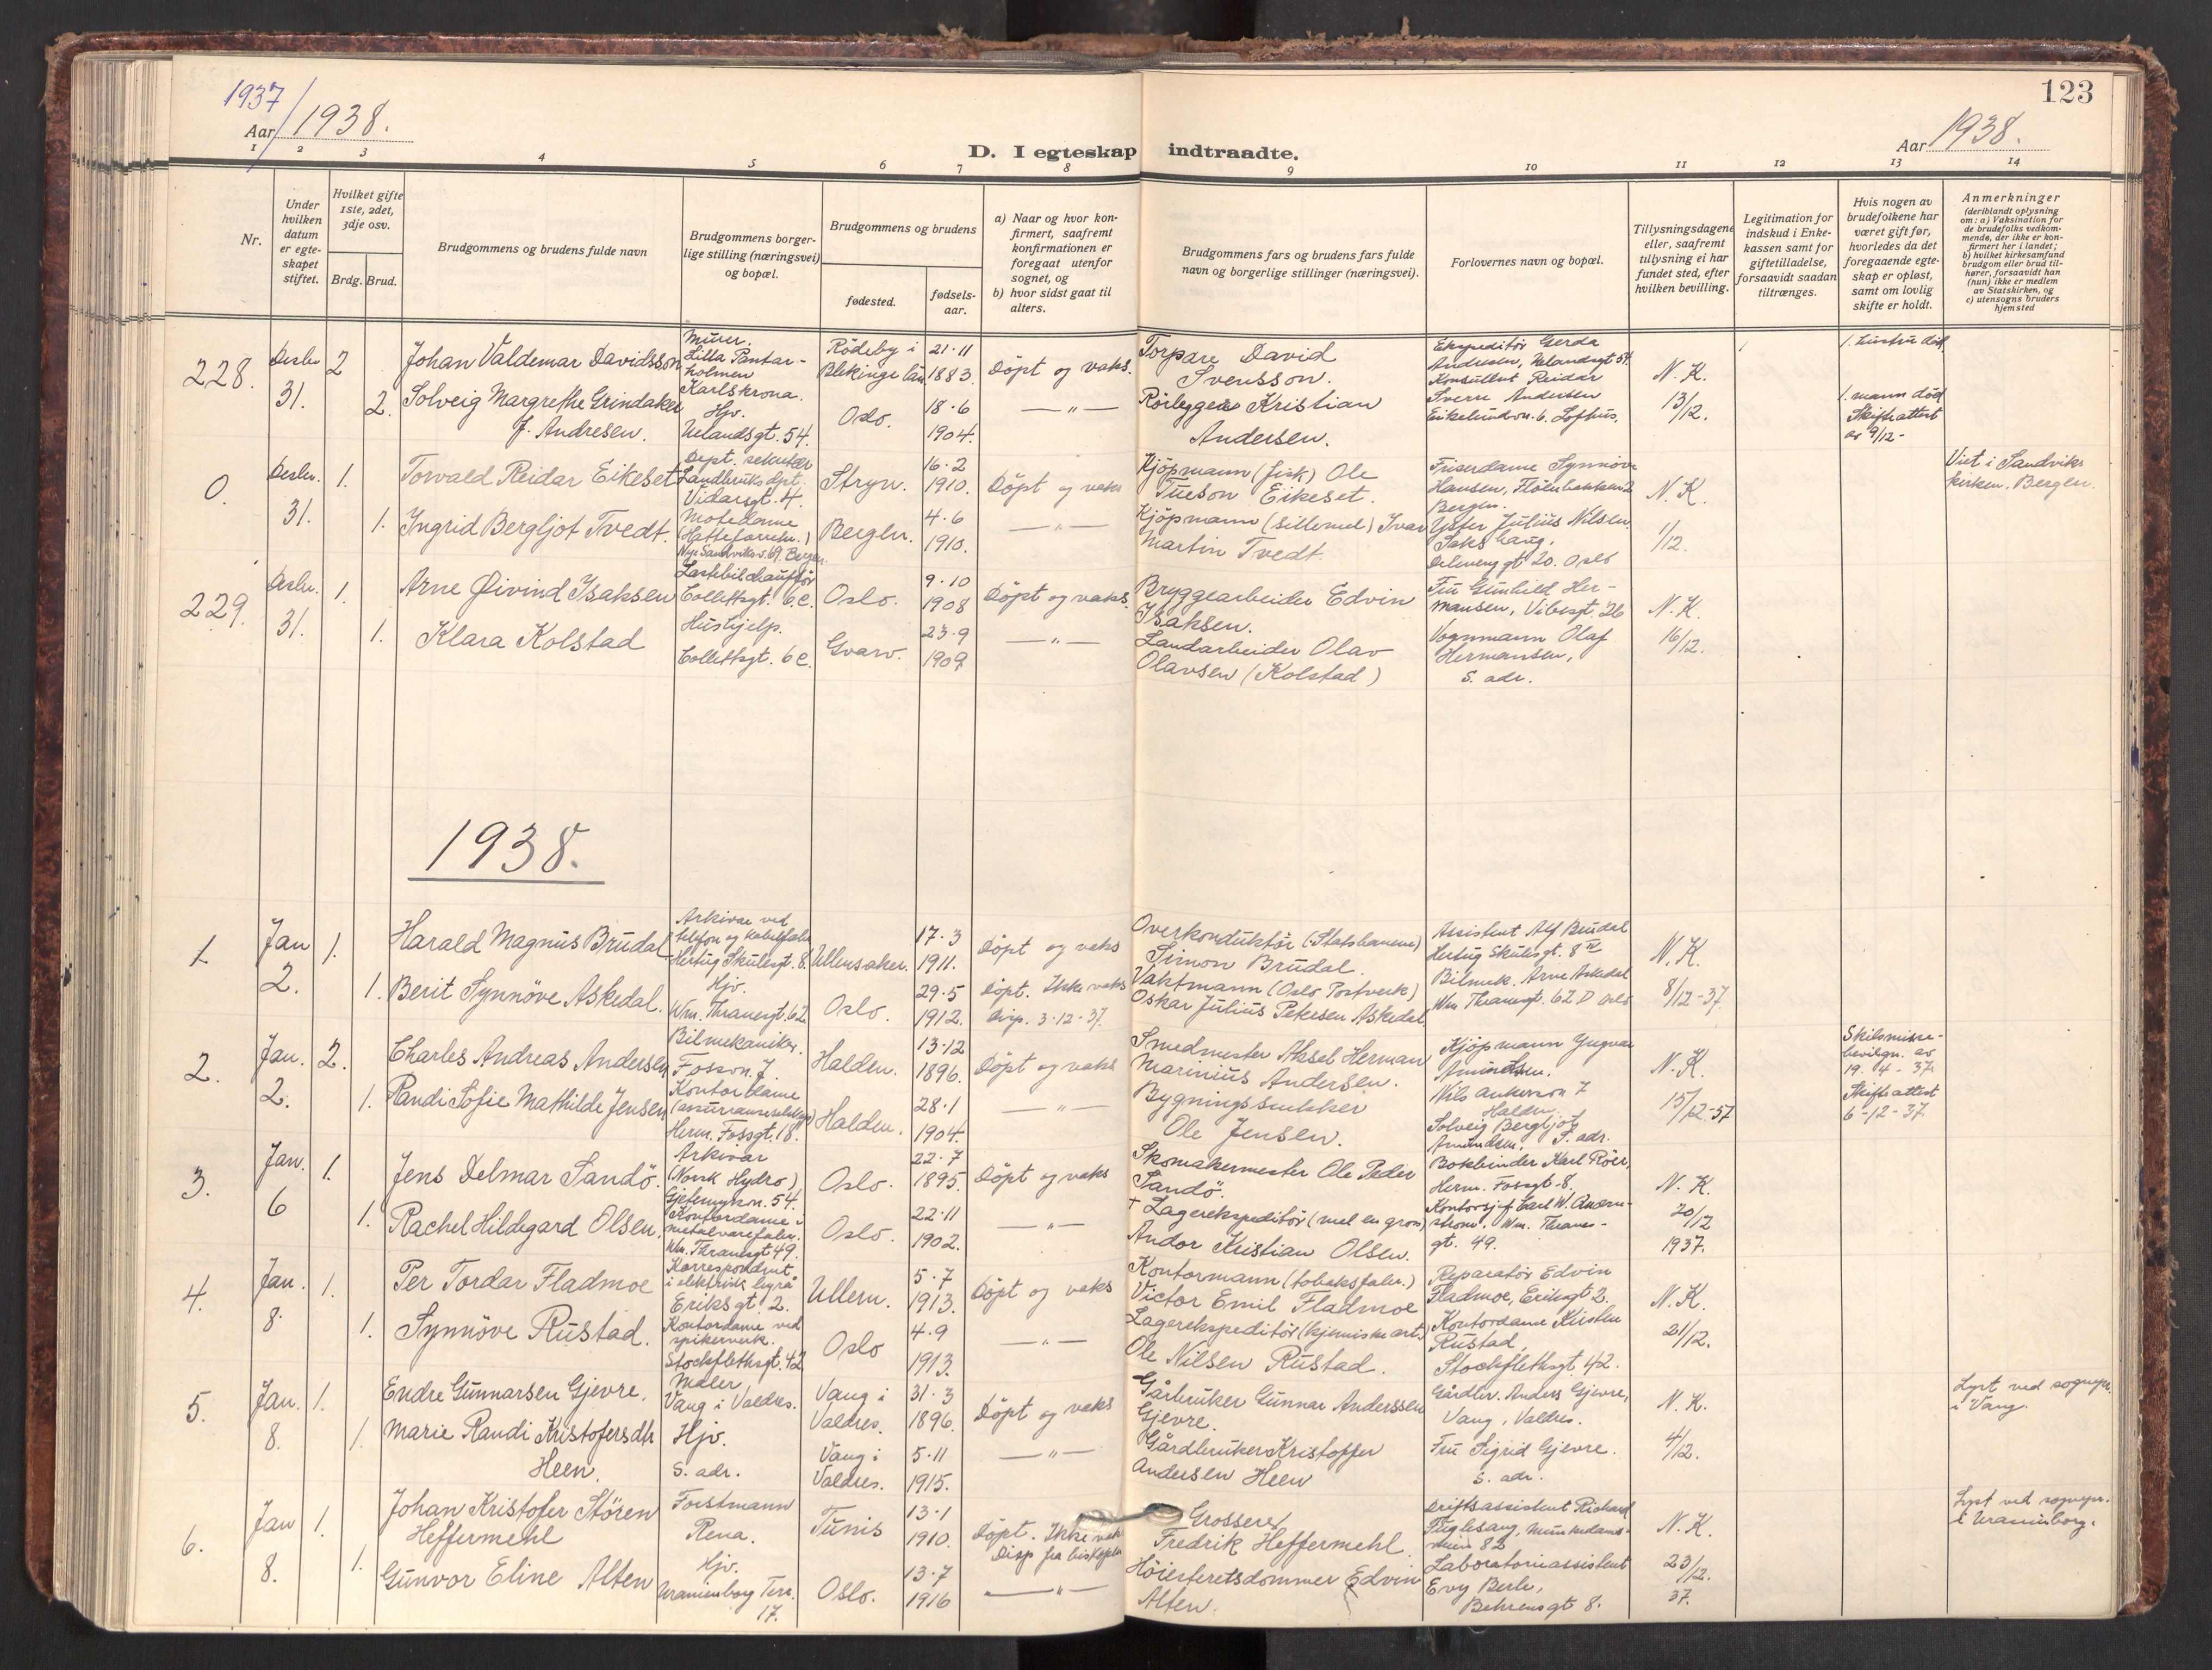 1937/
Aar 1938.
123
Aar 1938.
D. I egteskap indtraadte.
1 2 3 4 5 6 7 8 9 10 11 12 13 14
Nr.
Under hvilken datum er egteskapet stiftet.
Hvilket gifte 1ste, 2det, 3dje osv.
Brdg. Brud.
Brudgommens og brudens fulde navn
Brudgommens borgerlige stilling (næringsvei) og bopæl.
Brudgommens og brudens
fødested.
fødselsaar.
a) Naar og hvor konfirmert, saafremt konfirmationen er foregaat utenfor sognet, og
b) hvor sidst gaat til alters.
Brudgommens fars og brudens fars fulde navn og borgerlige stillinger (næringsvei).
Forlovernes navn og bopæl.
Tillysningsdagene eller, saafremt tillysning ei har fundet sted, efter hvilken bevilling.
Legitimation for indskud i Enkekassen samt for giftetilladelse, forsaavidt saadan tiltrænges.
Hvis nogen av brudefolkene har været gift før, hvorledes da det foregaaende egteskap er opløst, samt om lovlig skifte er holdt.
Anmerkninger
(deriblandt oplysning om: a) Vaksination for de brudefolks vedkommende, der ikke er konfirmert her i landet;
b) hvilket kirkesamfund brudgom eller brud tilhører, forsaavidt han (hun) ikke er medlem av Statskirken, og
c) utensogns bruders hjemsted
228. Desbr 31. 2
Johan Valdemar Davidsson
Murer. Lilla Pantarholmen Karlskrona.
Rödeby i Blekinge län
21-11 1883.
Döpt og vaks.
Torpare David Svensson.
Ekspeditør Gerda Andresen, Uelandsgt 54.
Konsulent Reidar Sverre Andersen
Eikelundvn. 6. Lofthus.
N. K. 13/12.
1. hustru död
2. Solveig Margrethe Grindaker f. Andresen.
Hjv. Uelandsgt. 54.
Oslo.
18-6 1904
— " —
Rörlegger Kristian Andersen.
1. mann död
Skifteattest av 9/12-
0. Desbr. 31. 1.
Torvald Reidar Eikeset
Dept. sekretær Landbruksdpt. Vidarsgt. 4.
Stryn.
16-2 1910.
Döpt og vaks
Kjöpmann (fisk) Ole Tueson Eikeset.
Friserdame Synnöve Hansen, Bergen.
N. K. 1/12.
Viet i Sandvikskirken, Bergen.
1. Ingrid Bergljot Tvedt.
Motedame
Nye Sandviksv. 69. Bergen
Bergen.
4-6 1910.
— " —
Kjöpmann Ivar Martin Tvedt.
Julius Nilsen
gt 20. Oslo
229. Desbr. 31. 1.
Arne Øivind Isaksen
Lastebilchauffør Collettsgt. 6 c.
Oslo.
9-10 1908
Döpt og vaks.
Bryggearbeider Edvin Isaksen.
Fru Gunhild Hermansen, Vibesgt. 26
N. K. 16/12.
1. Klara Kolstad
Hushjelp. Collettsgt. 6 c.
Gvarv.
23-9 1909
— " —
Landarbeider Olav Olavsen (Kolstad)
Vognmann Olaf Hermansen, S. adr.
1938.
1. Jan 2. 1.
Harald Magnus Brudal
Arkivar ved telefon og kabelfabr. Hertug Skulesgt. 8.
Ullensaker.
17-3 1911.
Döpt og vaks
Overkonduktör (Statsbanene) Simon Brudal.
Assistent Alf Brudal Hertug Skulesgt. 8 IV
N. K. 8/12-37.
1. Berit Synnöve Askedal.
Hjv. Wm. Thranesgt. 62
Oslo.
29-5 1912.
Döpt. Ikke vaks Disp. 3-12-37.
Vaktmann (Oslo Postverk) Oskar Julius Petersen Askedal
Bilmek. Arne Askedal Wm Thranesgt. 62 D Oslo
2. Jan. 2. 2.
Charles Andreas Andersen
Bilmekaniker. Fossvn. 7.
Halden.
13-12 1896.
Döpt og vaks
Smedmester Aksel Herman Marinius Andersen.
Kjöpmann Yngvar Amundsen. Nils Ankersvn 7 Halden
N. K. 15/12-37
Skilsmissebevilgn. av 19-4-37.
Skifteattest 6-12-37.
1. Randi Sofie Mathilde Jensen
Kontordame (assuranseselskap) Herm. Fossgt. 18.
Halden.
28-1 1904.
— " —
Bygningssnekker Ole Jensen.
Solveig Bergljot Amundsen. S. adr.
3. Jan. 6 1.
Jens Delmar Sandö.
Arkivar (Norsk Hydro) Gjetemyrsvn. 54.
Oslo.
22-7 1895.
Döpt og vaks
Skomakermester Ole Peder Sandö.
Bokbinder Karl Röer, Herm. Fossgt. 8.
N. K. 20/12 1937.
1. Rachel Hildegard Olsen.
Kontordame i metalvarefabr. Wm. Thranesgt 49.
Oslo.
22-11 1902.
— " —
† Lagerekspeditör (mel en gros) Andor Kristian Olsen.
Kontorsjef Carl W. Wm. Thranesgt. 49.
4. Jan. 8. 1.
Per Tordar Fladmoe
Korrespondent i elektrisk byrå Eriksgt. 2.
Ullern.
5-7 1913.
Döpt og vaks
Kontormann (tobaksfabr.) Victor Emil Fladmoe
Reparatör Edvin Fladmoe, Eriksgt 2.
N. K. 21/12.
1. Synnöve Rustad.
Kontordame ved spikerverk. Stockflethsgt. 42
Oslo
4-9 1913.
— " —
Lagerekspeditör (kjemiske art.) Ole Nilsen Rustad.
Kontordame Kirsten Rustad, Stockflethsgt. 42.
5. Jan. 8. 1.
Endre Gunnarsen Gjevre,
Maler Vang i Valdres.
Vang i Valdres.
31-3 1896.
Döpt og vaks
Gårbruker Gunnar Anderssen Gjevre.
Gårdbr. Anders Gjevre, Vang, Valdres.
N. K. 4/12.
Lyst ved sognepr. i Vang.
1. Marie Randi Kristofersdtr Heen.
Hjv. S. adr.
Vang i Valdres.
5-11 1915.
— " —
Gårdbruker Kristoffer Andersen Heen
Fru Sigrid Gjevre. S. adr.
6. Jan 8. 1.
Johan Kristofer Stören Heffermehl
Forstmann Rena.
Tunis
13-1 1910.
Döpt. Ikke vaks Disp fra biskopen
Grosserer Fredrik Heffermehl.
Driftsassistent Richard Fuglesang, Munkedamsveien 82
N. K. 23/12. 37.
Lyst ved sognepr. i Uranienborg.
1. Gunvor Eline Alten
Hjv. Uranienborg Terr. 17.
Oslo.
13-7 1916
— " —
Höiesteretsdommer Edvin Alten.
Laboratorieassistent Evy Berle, Behrensgt 8.